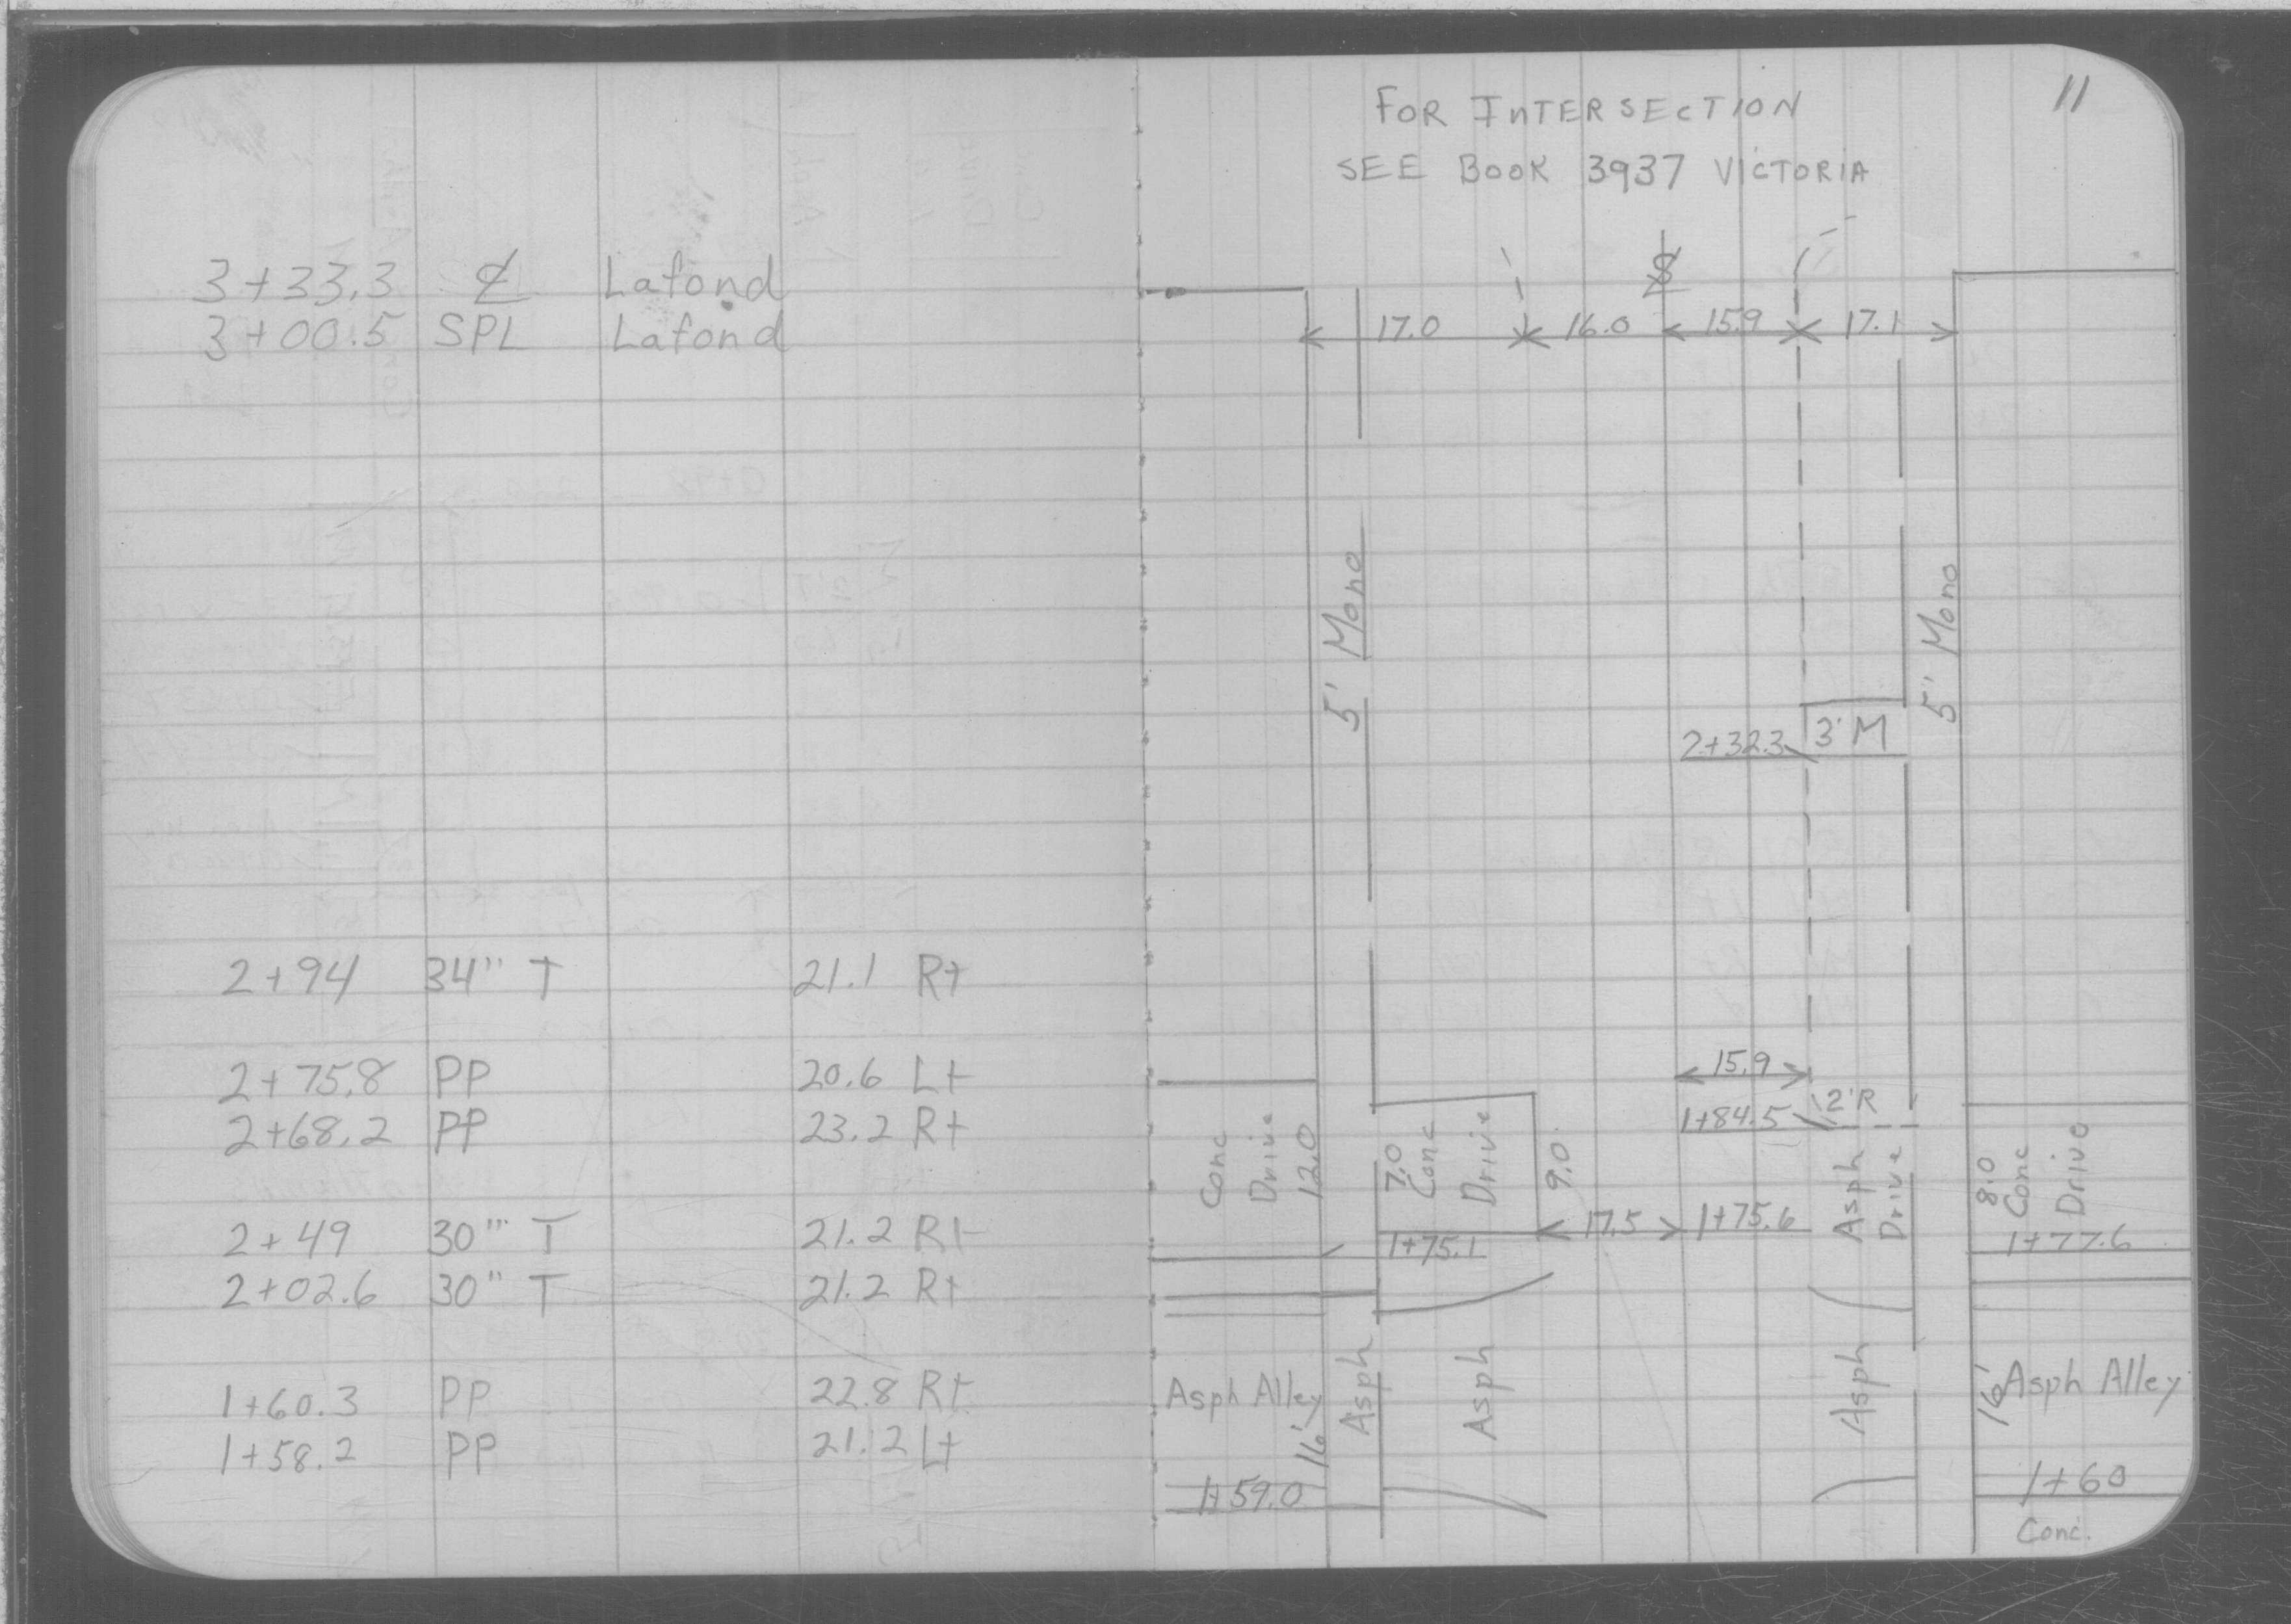 3+33.3 ℄ Lafond
3+00.5 SPL Lafond
2+94 34" T 21.1 Rt
2+75.8 PP 20.6 Lt
2+68.2 PP 23.2 Rt
2+49 30"' T 21.2 Rt
2+02.6 30" T 21.2 Rt
1+60.3 PP 22.8 Rt
1+58.2 PP 21.2 Lt
11
FOR INTERSECTION
SEE BOOK 3937 VICTORIA
℄
17.0 16.0 15.9 17.1
5' Mono
5' Mono
2+32.3 3' M
15.9
1+84.5 2'R
Conc
Drive
12.0
7.0
Conc
Drive
9.0
Asph
Drive
8.0
Conc
Drive
1+75.1 17.5 1+75.6 1+77.6
Asph Alley
16'
Asph
Asph
Asph
16'
Asph Alley
1+59.0
1+60
Conc.